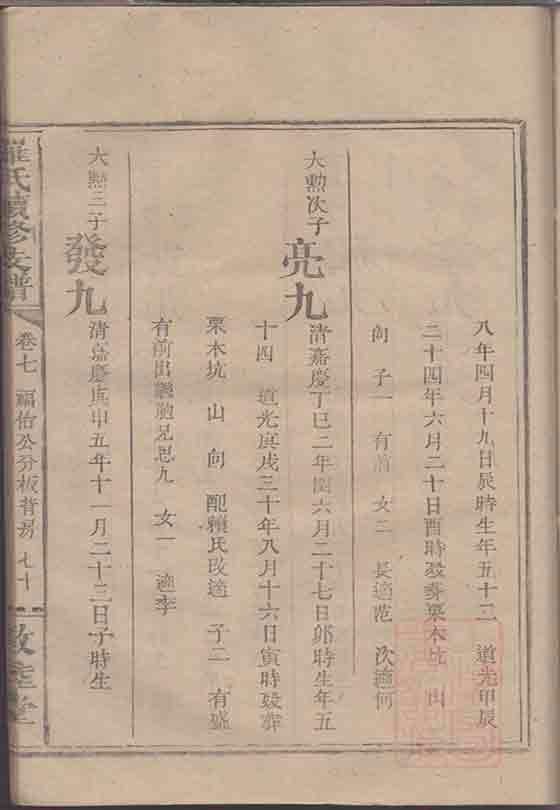 八年四月十九日辰時生年五十三 道光甲辰
二十四年六月二十日酉時歿葬栗木坑 山
向 子一 有 女二 長適范 次適何
大勲次子
亮九
清嘉慶丁巳二年閏六月二十七日卯時生年五
十四 道光庚戌三十年八月十六日寅時歿葬
栗木坑 山 向 配賴氏改適 子二 有盛
有前出繼胞兄思九 女一 適李
大勲三子
發九
清嘉慶庚申五年十一月二十三日子時生
羅氏續修支譜
卷七 福佑公分板背房 七十
敦堂